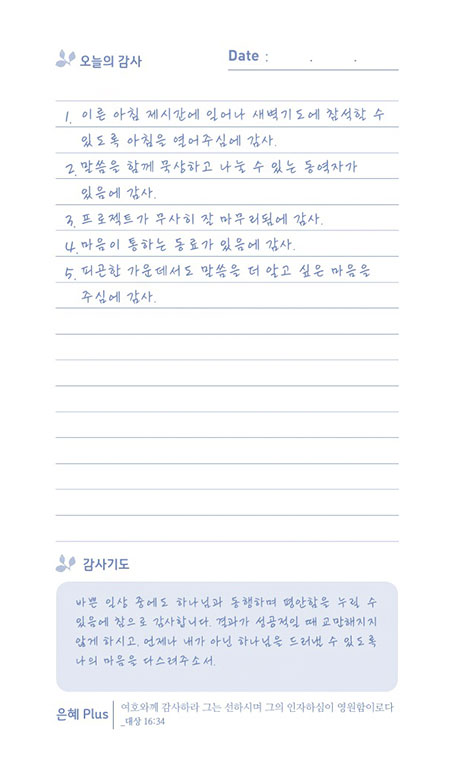 오늘의 감사
Date : . .
1. 이른 아침 제시간에 일어나 새벽기도에 참석할 수
있도록 아침을 열어주심에 감사.
2. 말씀을 함께 묵상하고 나눌 수 있는 동역자가
있음에 감사.
3. 프로젝트가 무사히 잘 마무리됨에 감사.
4. 마음이 통하는 동료가 있음에 감사.
5. 피곤한 가운데서도 말씀을 더 알고 싶은 마음을
주심에 감사.
감사기도
바쁜 일상 중에도 하나님과 동행하며 평안함을 누릴 수
있음에 참으로 감사합니다. 결과가 성공적일 때 교만해지지
않게 하시고, 언제나 내가 아닌 하나님을 드러낼 수 있도록
나의 마음을 다스려주소서.
은혜 Plus
여호와께 감사하라 그는 선하시며 그의 인자하심이 영원함이로다
_대상 16:34